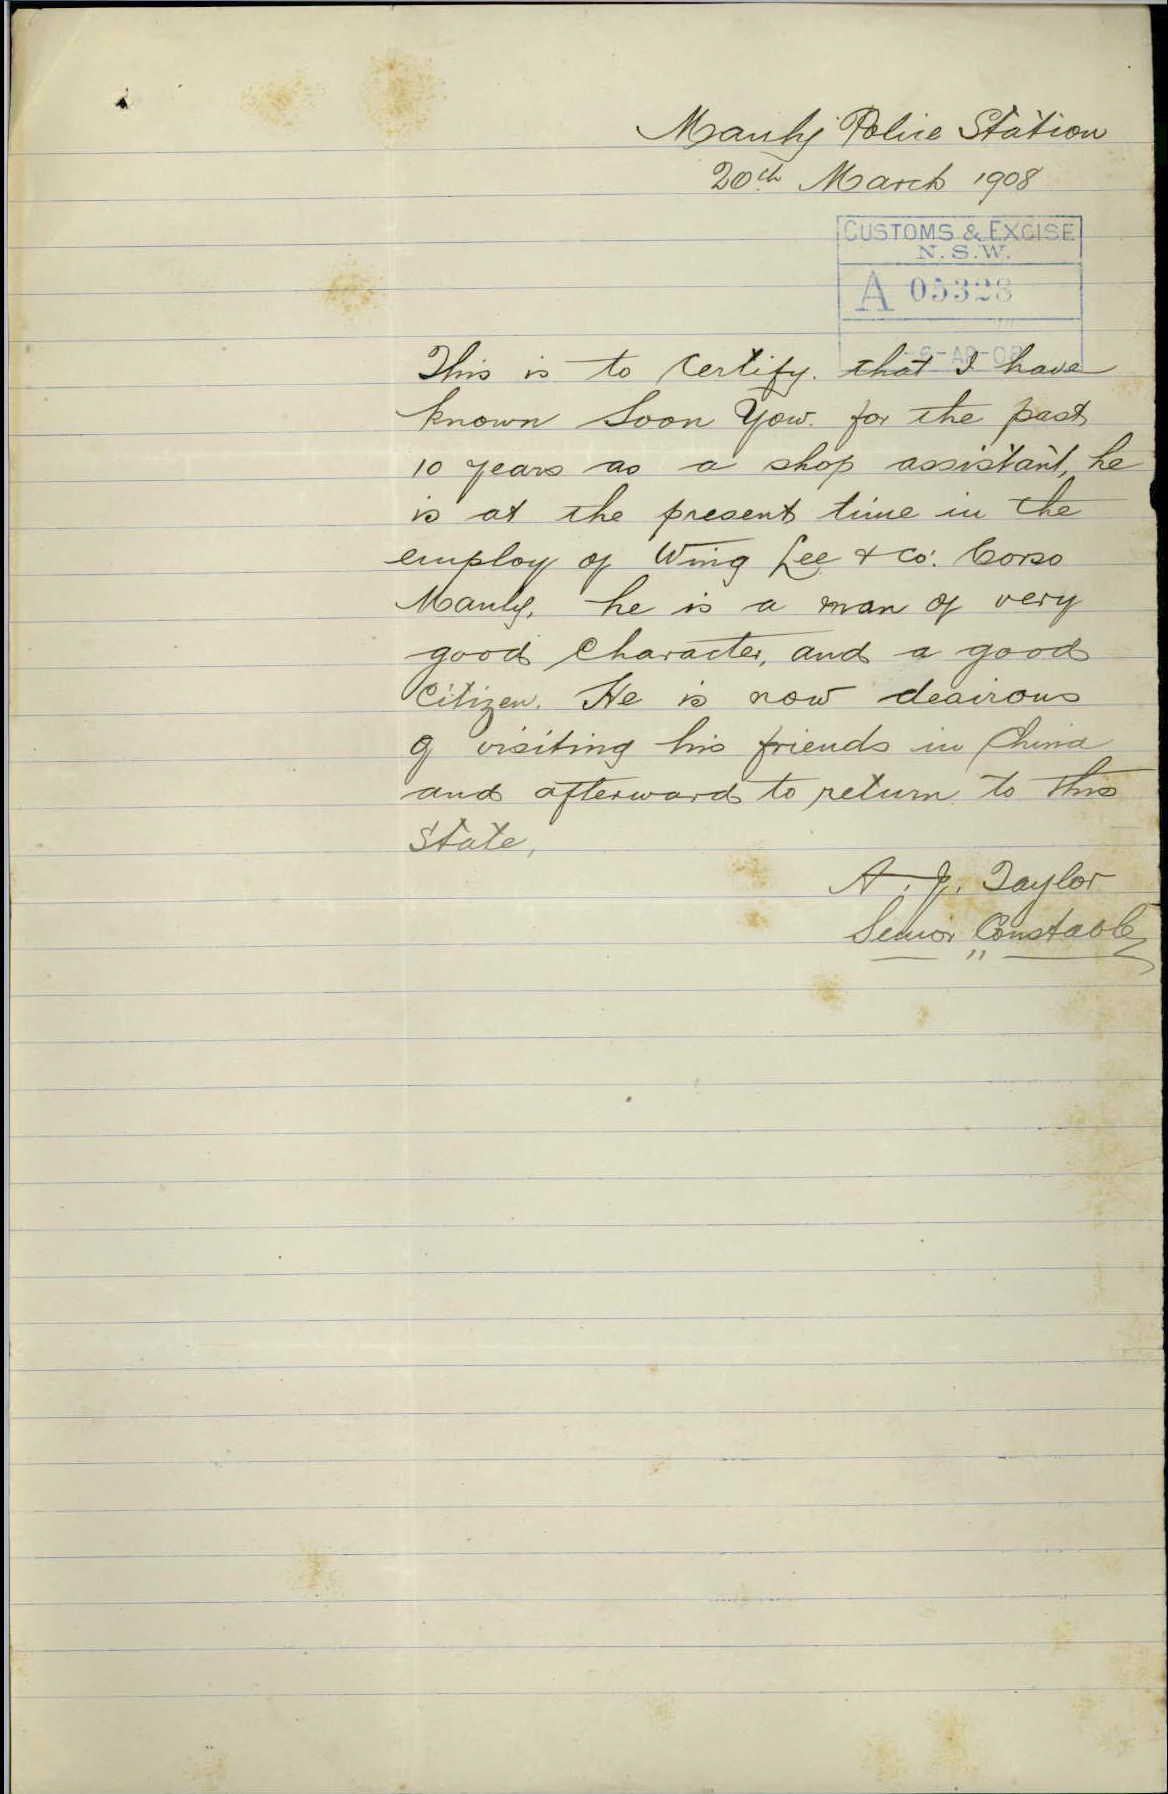 Manly Police Station
20th March 1908
CUSTOMS & EXCISE
N.S.W.
A 05328
This is to Certify. that I have
known Soon Yow. for the past
10 years as a shop assistant, he
is at the present time in the
employ of Wing Lee & Co. Corso
Manly, he is a man of very
good Character, and a good
Citizen. He is now desirous
of visiting his friends in China
and afterward to return to this
State,
A. J. Taylor
Senior Constable